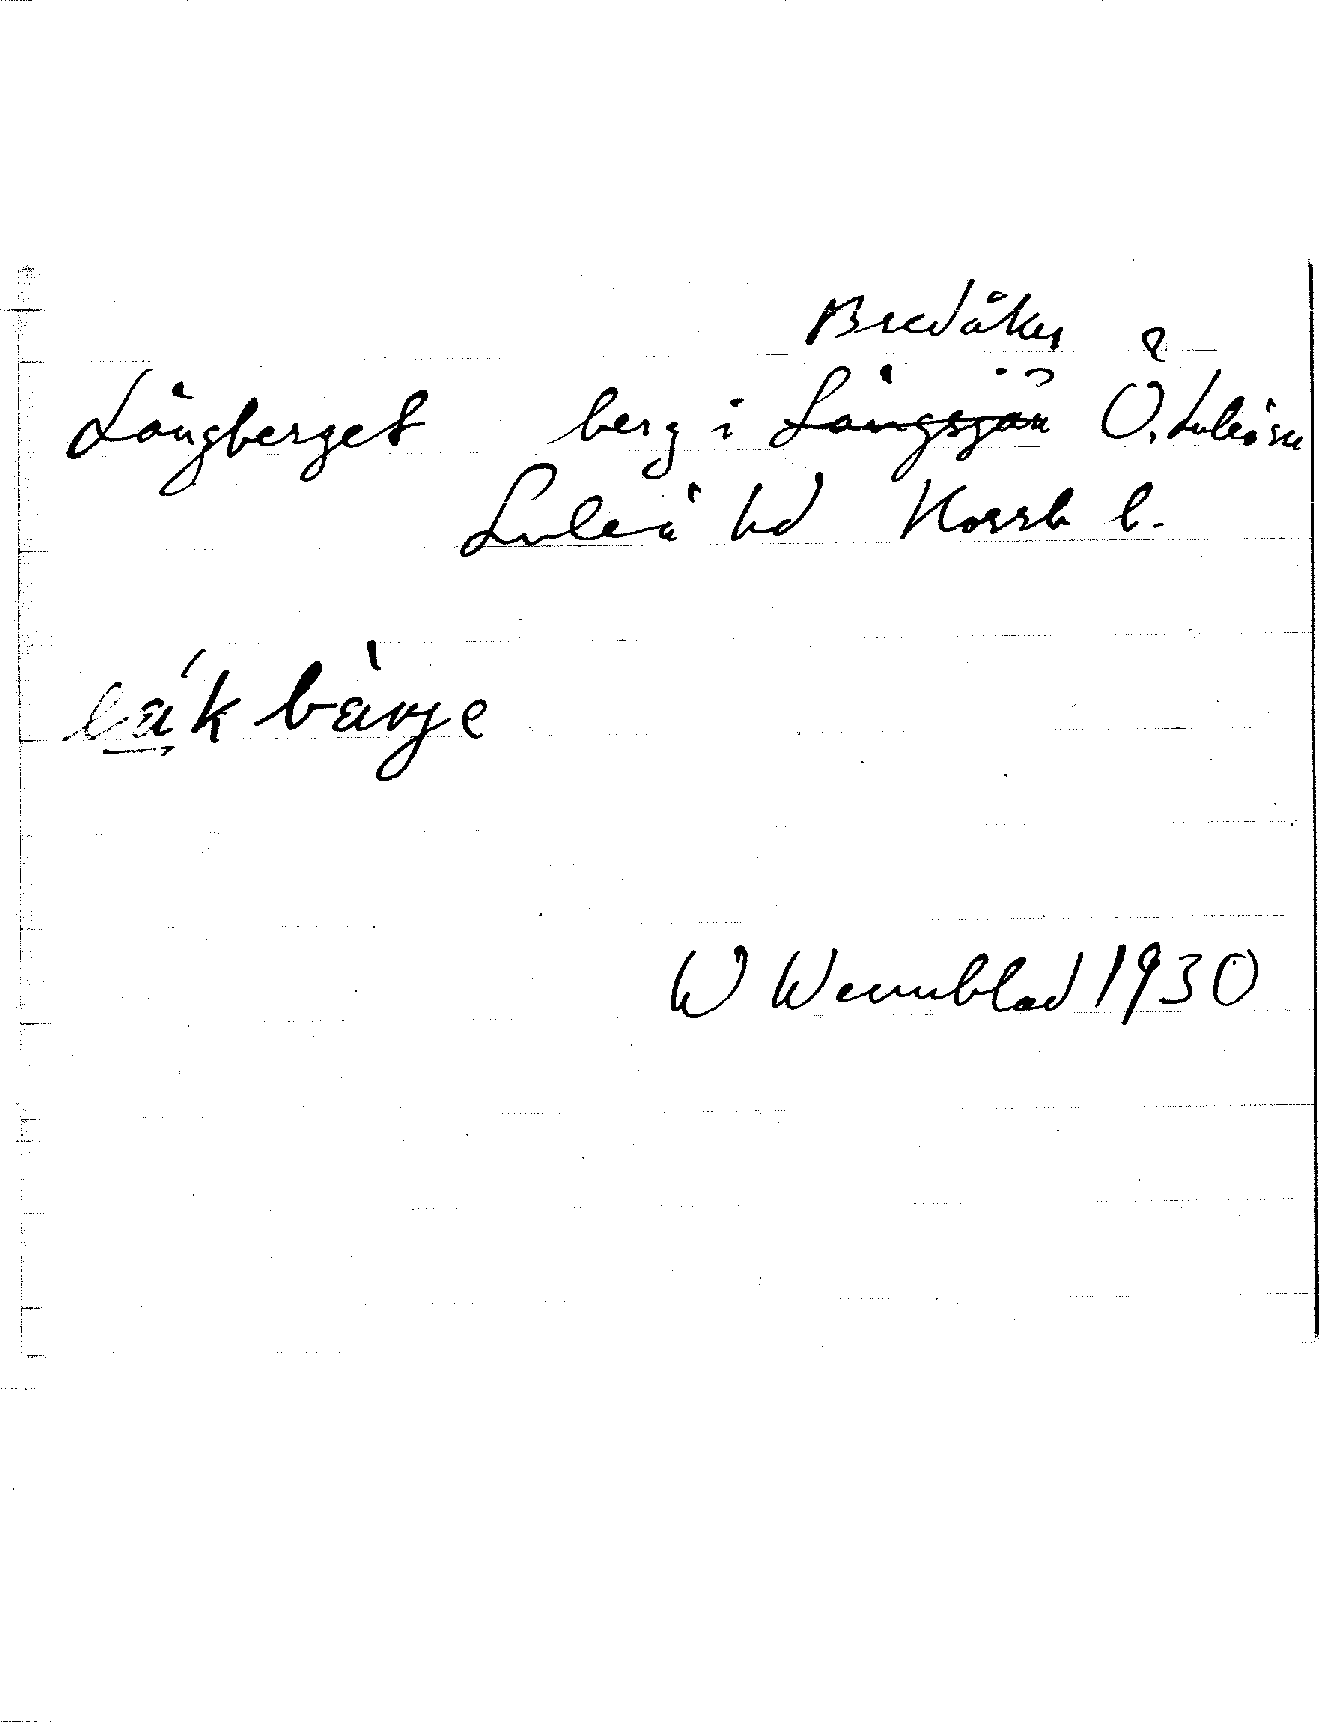 Bredåker
Långberget berg i Långsjön Ö. Luleå sn
Luleå hd Norrb l.
W Wennblad 1930